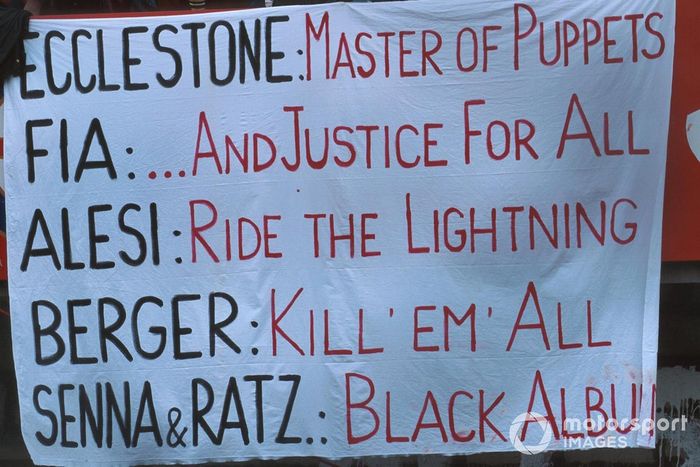 ECCLESTONE: MASTER OF PUPPETS
FIA: ...AND JUSTICE FOR ALL
ALESI: RIDE THE LIGHTNING
BERGER: KILL 'EM' ALL
SENNA & RATZ.: BLACK ALBUM
motorsport
IMAGES